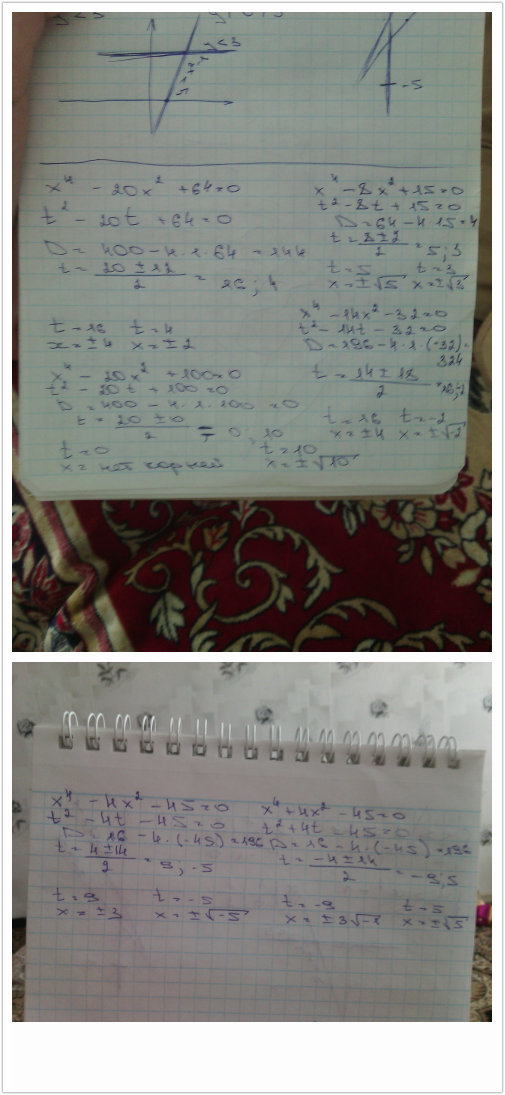 y<3
-5
x⁴ - 20x² + 64 = 0
t² - 20t + 64 = 0
D = 400 - 4·1·64 = 144
t = (20 ± 12)/2 = 16; 4
t = 16 t = 4
x = ±4 x = ±2
x⁴ - 20x² + 100 = 0
t² - 20t + 100 = 0
D = 400 - 4·1·100 = 0
t = (20 ± 0)/2 = 0; 10
t = 0 t = 10
x = нет корней x = ±√10
x⁴ - 8x² + 15 = 0
t² - 8t + 15 = 0
D = 64 - 4·15 = 4
t = (8 ± 2)/2 = 5; 3
t = 5 t = 3
x = ±√5 x = ±√3
x⁴ - 14x² - 32 = 0
t² - 14t - 32 = 0
D = 196 - 4·1·(-32) =
324
t = (14 ± 18)/2 = 16; -2
t = 16 t = -2
x = ±4 x = ±√-2
x⁴ - 4x² - 45 = 0
t² - 4t - 45 = 0
D = 16 - 4·(-45) = 196
t = (4 ± 14)/2 = 9; -5
t = 9 t = -5
x = ±3 x = ±√-5
x⁴ + 4x² - 45 = 0
t² + 4t - 45 = 0
D = 16 - 4·(-45) = 196
t = (-4 ± 14)/2 = -9; 5
t = -9 t = 5
x = ±3√-1 x = ±√5